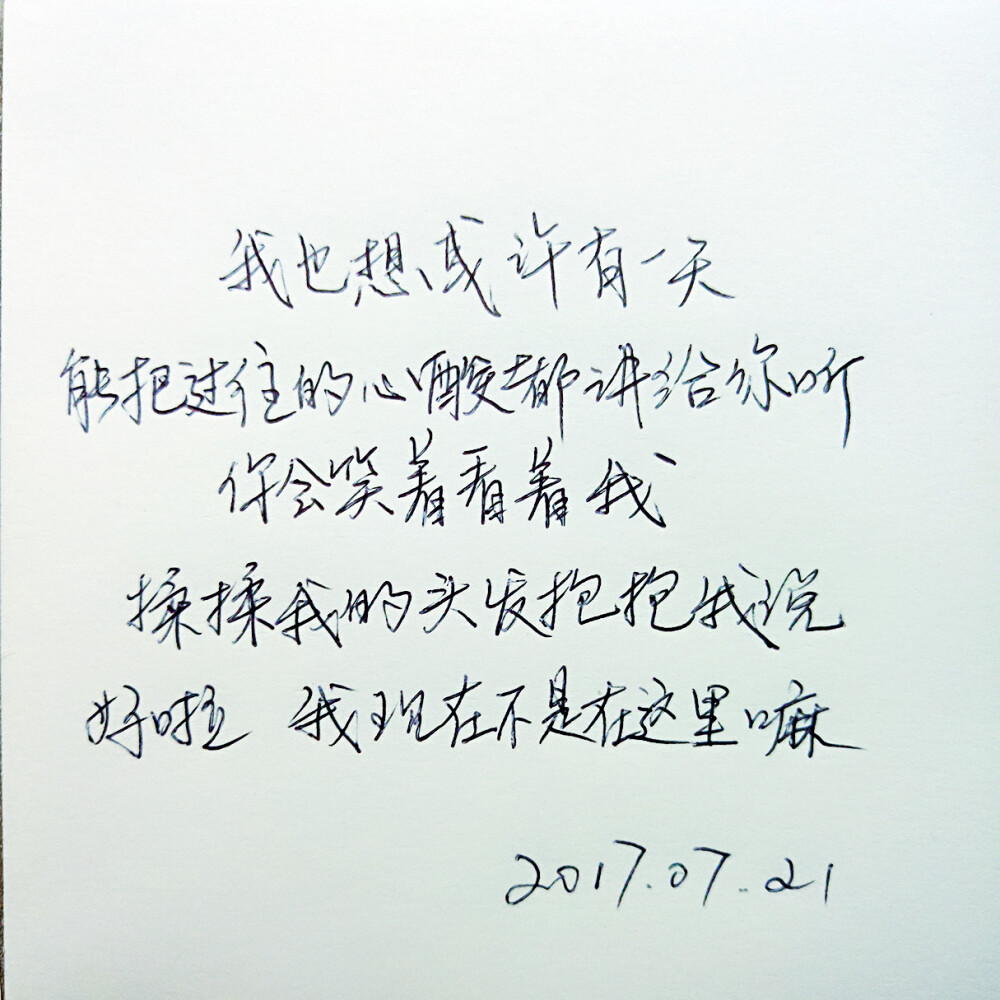 我也想,或许有一天
能把过往的心酸都讲给你听
你会笑着看着我
揉揉我的头发抱抱我说
好啦 我现在不是在这里嘛
2017.07.21